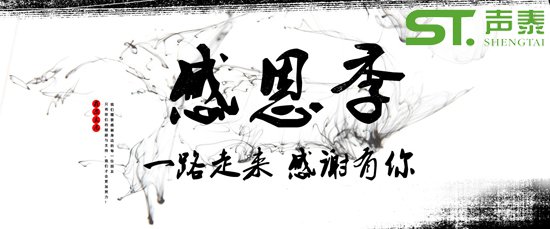 ST. 声泰
SHENGTAI
感恩季
一路走来 感谢有你